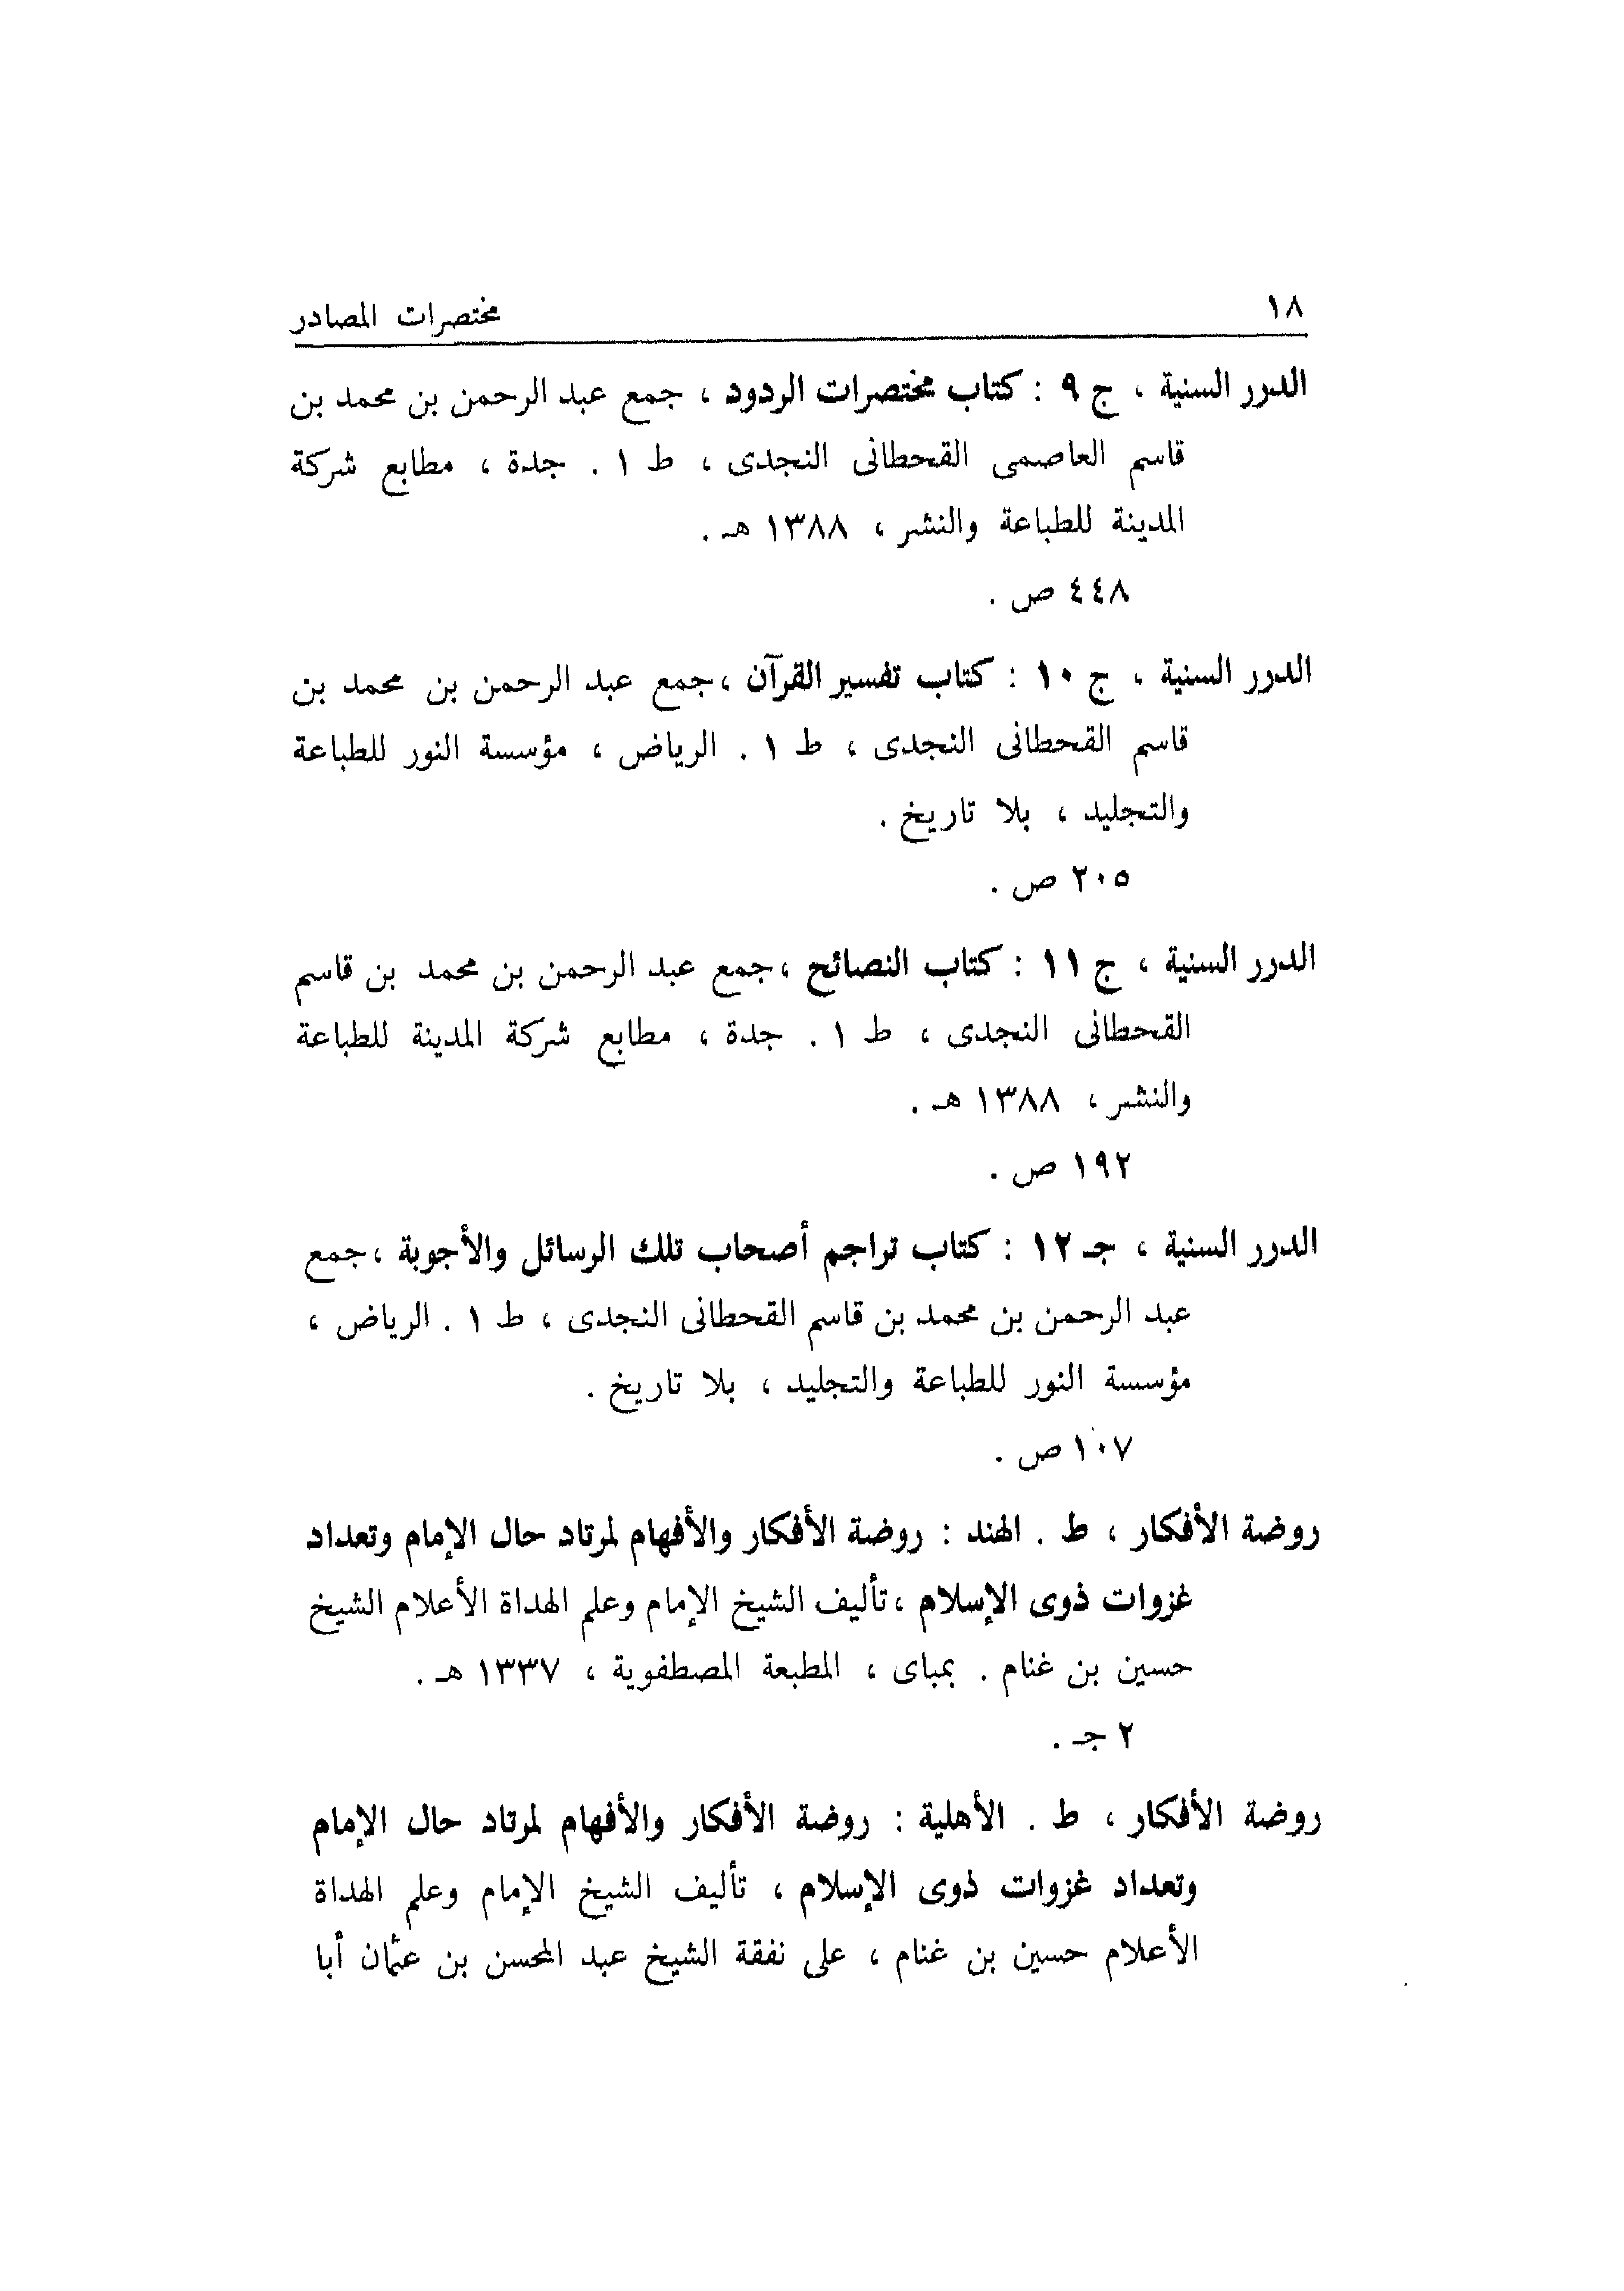 ١٨ مختصرات المصادر
الدرر السنية ، ج ٩ : كتاب مختصرات الردود ، جمع عبد الرحمن بن محمد بن
قاسم العاصمى القحطانى النجدى ، ط ١ . جدة ، مطابع شركة
المدينة للطباعة والنشر ، ١٣٨٨ هـ .
٤٤٨ ص .
الدرر السنية ، ج ١٠ : كتاب تفسير القرآن ، جمع عبد الرحمن بن محمد بن
قاسم القحطانى النجدى ، ط ١ . الرياض ، مؤسسة النور للطباعة
والتجليد ، بلا تاريخ .
٣٠٥ ص .
الدرر السنية ، ج ١١ : كتاب النصائح ، جمع عبد الرحمن بن محمد بن قاسم
القحطانى النجدى ، ط ١ . جدة ، مطابع شركة المدينة للطباعة
والنشر ، ١٣٨٨ هـ .
١٩٢ ص .
الدرر السنية ، جـ ١٢ : كتاب تراجم أصحاب تلك الرسائل والأجوبة ، جمع
عبد الرحمن بن محمد بن قاسم القحطانى النجدى ، ط ١ . الرياض ،
مؤسسة النور للطباعة والتجليد ، بلا تاريخ .
١٠٧ ص .
روضة الأفكار ، ط . الهند : روضة الأفكار والأفهام لمرتاد حال الإمام وتعداد
غزوات ذوى الإسلام ، تأليف الشيخ الإمام وعلم الهداة الأعلام الشيخ
حسين بن غنام . بمباى ، المطبعة المصطفوية ، ١٣٣٧ هـ .
٢ جـ .
روضة الأفكار ، ط . الأهلية : روضة الأفكار والأفهام لمرتاد حال الإمام
وتعداد غزوات ذوى الإسلام ، تأليف الشيخ الإمام وعلم الهداة
الأعلام حسين بن غنام ، على نفقة الشيخ عبد المحسن بن عثمان أبا